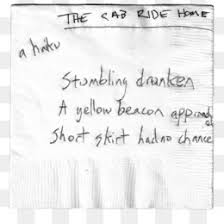 THE CAB RIDE HOME
a haiku
Stumbling drunken
A yellow beacon approach
Short skirt had no chance